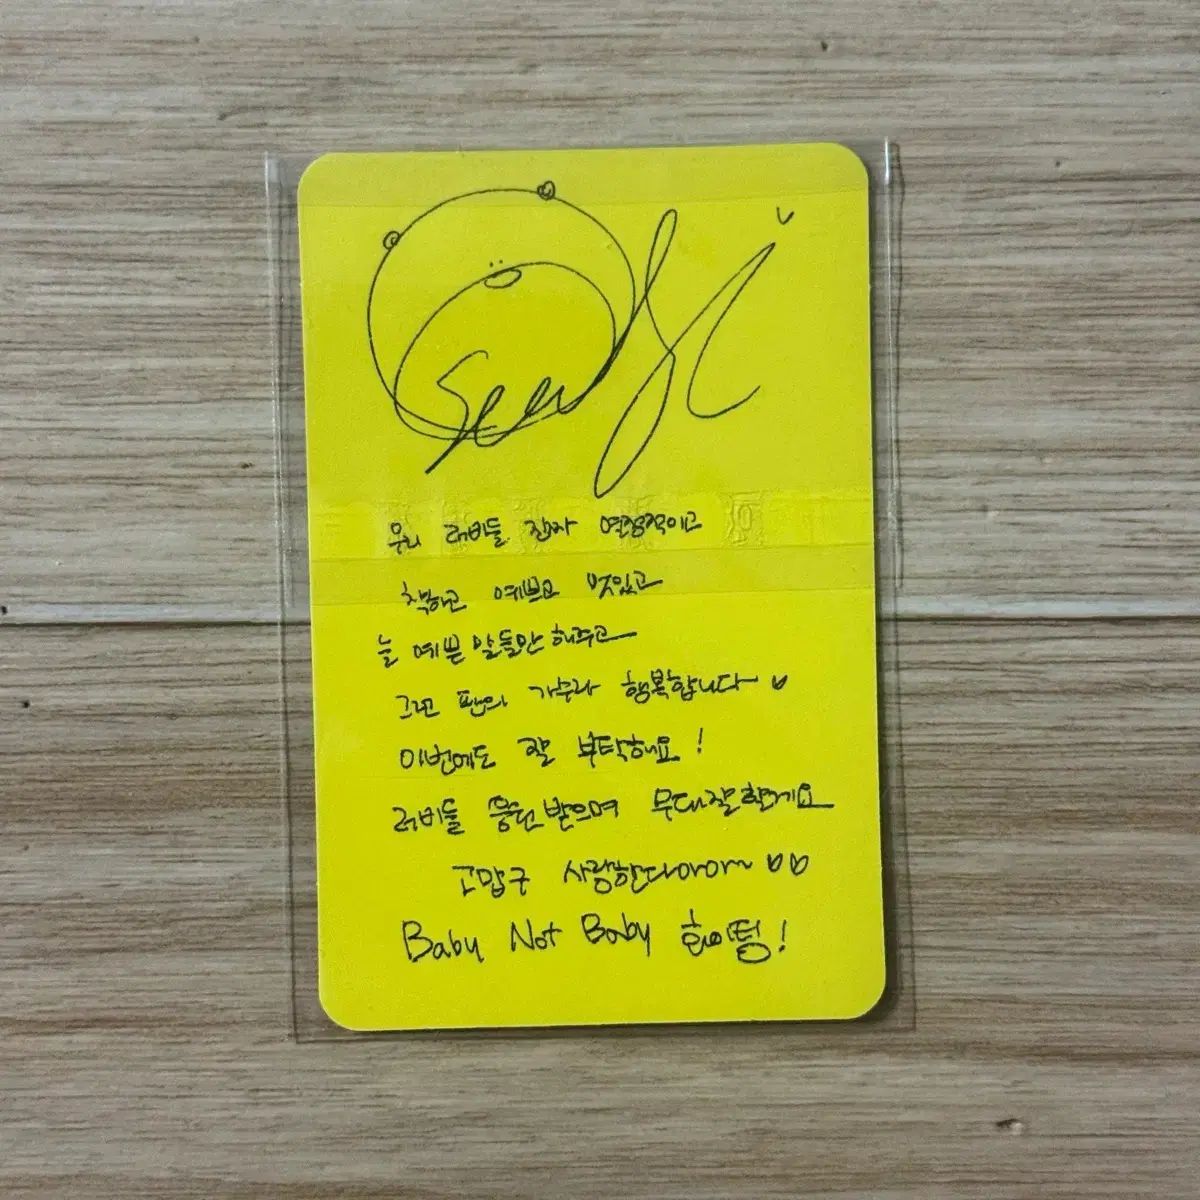 Seulgi
우리 러비들 진짜 열정적이고
착하고 예쁘고 멋있고
늘 예쁜 말들만 해주고
그런 팬의 가수라 행복합니다
이번에도 잘 부탁해요!
러비들 응원 받으며 무대 잘 할게요
고맙구 사랑한다아아~
Baby Not Baby 화이팅!